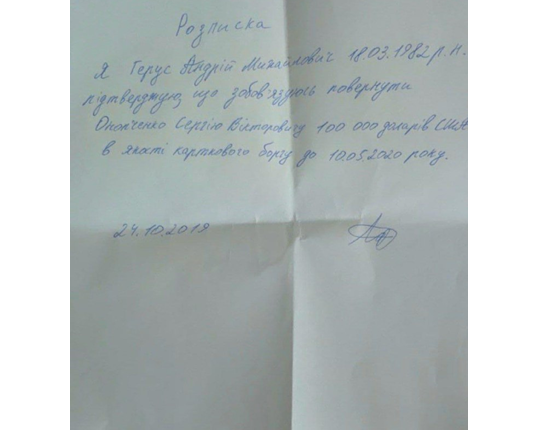 Розписка
Я Герус Андрій Михайлович 18.03.1982 р. н.
підтверджую, що зобов'язуюсь повернути
Онопченко Сергію Вікторовичу 100 000 доларів США
в якості карткового боргу до 10.05.2020 року.
24.10.2019